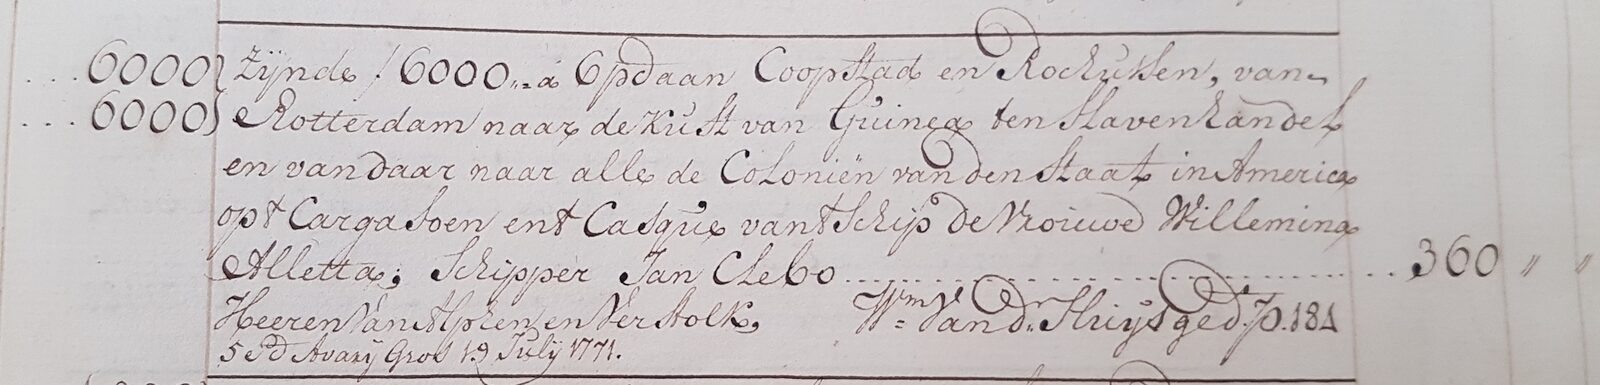 ...6000} Zÿnde f 6000.,, à 6 p. d aan Coopstad en Rochussen, van
...6000} Rotterdam naar de Kust van Guinea ten slaven handel
en van daar naar alle de Coloniën van den Staat in America
op t Cargasoen en t Casque van t Schip de Vrouwe Willemina
Alletta, Schipper Jan Clebo ............ 360 " "
Heeren Van Alphen en Verstolk, Wm. Van dr. Sluijs ged. fo. 181
Avarij Gros 19 Julij 1771.